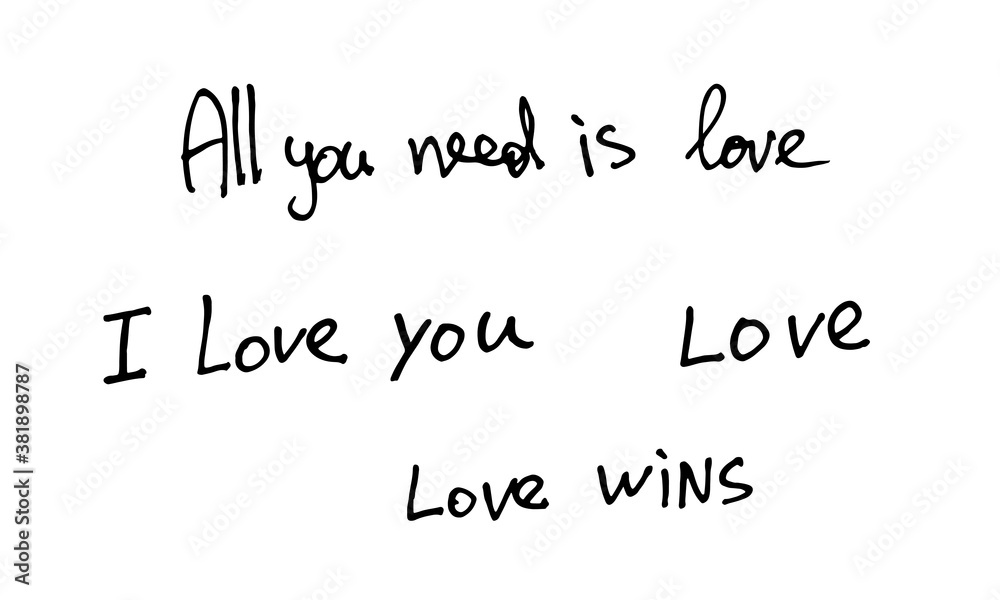 All you need is love
I Love you Love
Love wins
Adobe Stock | #381898787